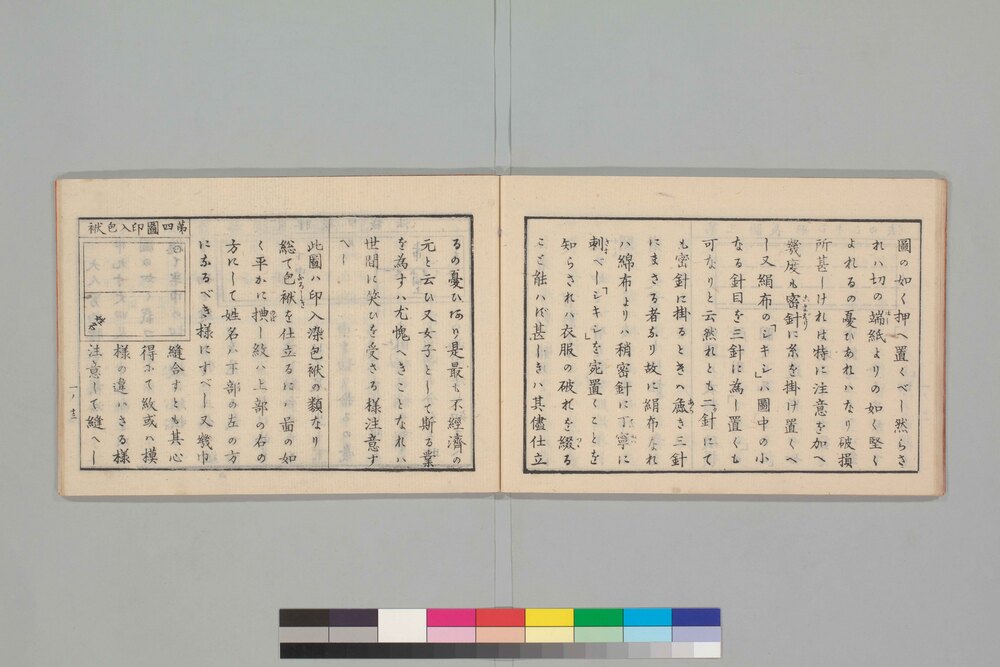 圖の如く押へ置くべし然らさ
れハ切の端紙よりの如く堅く
よれるの憂ひあれハなり破損
所甚しけれは特に注意を加へ
幾度も密針に糸を掛け置くへ
し又絹布の「シキシ」ハ圖中の小
なる針目を三針に為し置くも
可なりと云然れとも二針にて
も密針に掛るときへ麁き三針
にまさる者なり故に絹布なれ
ハ綿布よりハ稍密針に丁寧に
刺べし「シキシ」を宛置くことを
知らされハ衣服の破れを綴る
こと能ハず甚しきハ其儘仕立
るの憂ひあり是最も不經濟の
元と云ひ又女子として斯る業
を為すハ尤愧へきことなれハ
世間に笑ひを受さる様注意す
へし
此圖ハ印入染包袱の類なり
総て包袱を仕立るに ハ 圖の如
く平かに し紋ハ上部の右の
方にして姓名ハ下部の左の方
になるべき様にすべし又幾巾
第四圖印入包袱
縫合すとも其心
得にて紋或ハ模
様の違ハさる様
注意して縫へし